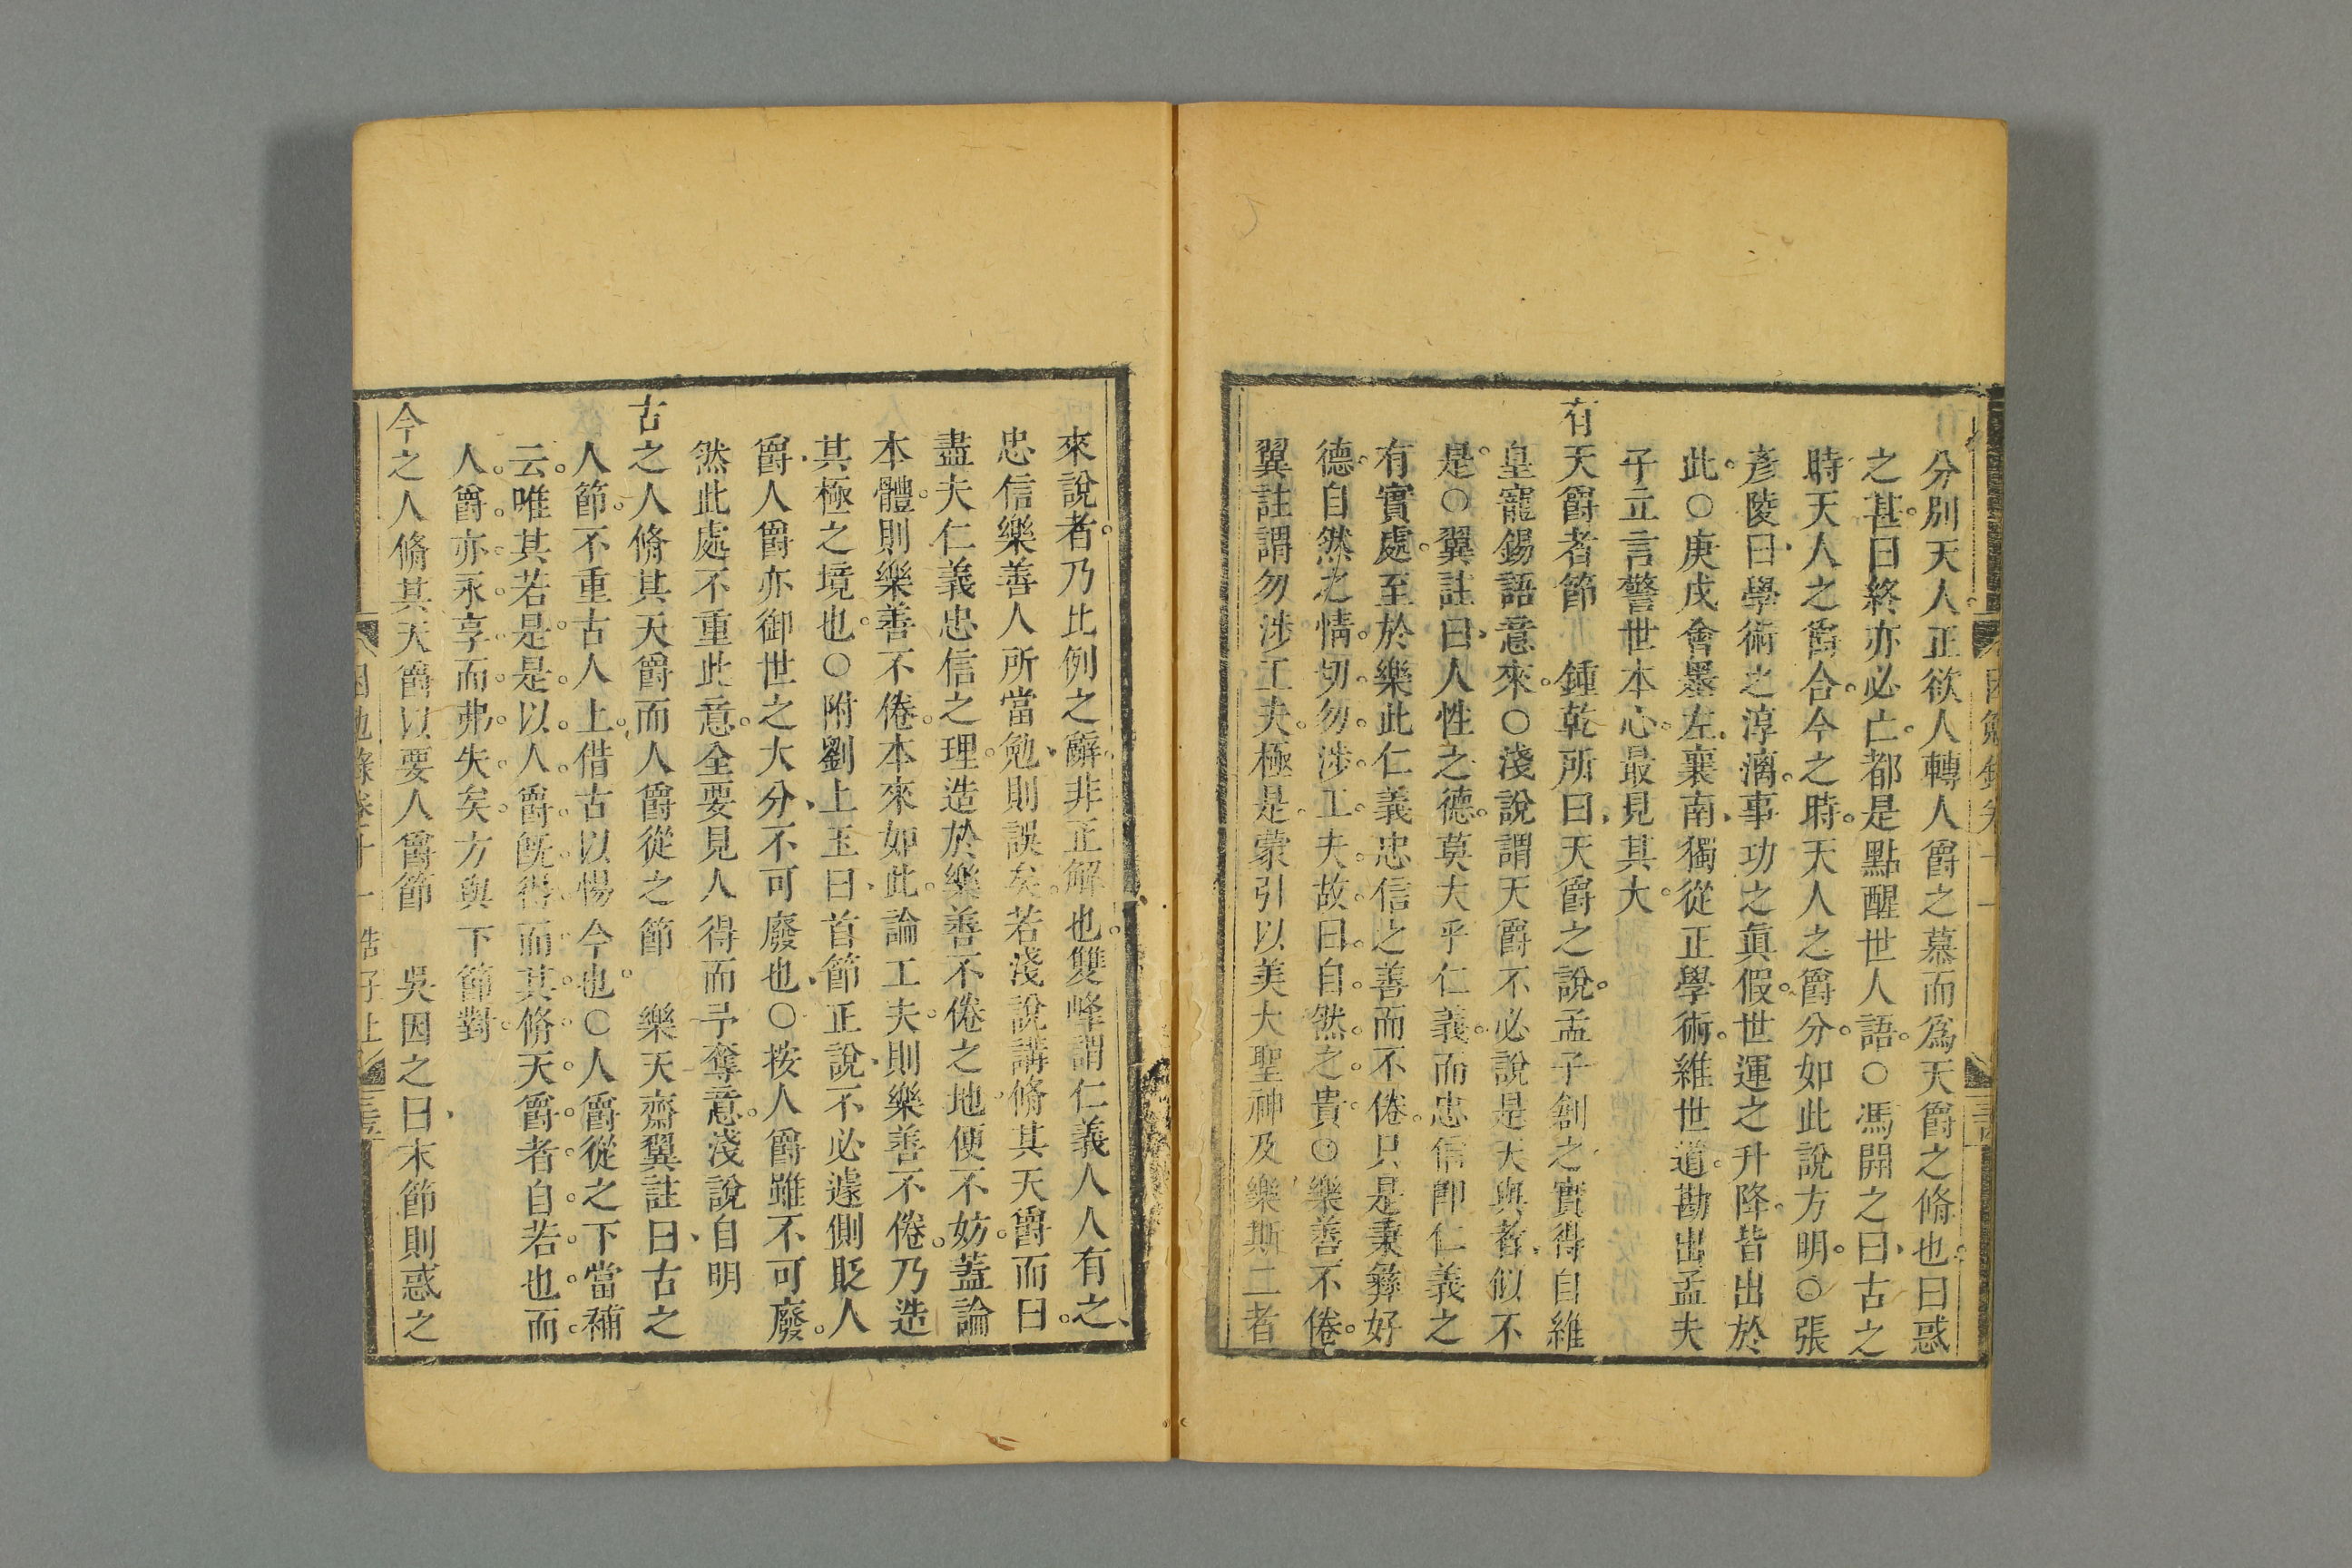 分別天人正欲人轉人爵之慕而爲天爵之脩也曰惑
之甚曰終亦必亡都是點醒世人語○馮開之曰古之
時天人之爵合今之時天人之爵分如此說方明○張
彥陵曰學術之淳漓事功之眞假世運之升降皆出於
此○庚戌會墨左襄南獨從正學術維世道勘出孟夫
子立言警世本心最見其大
有天爵者節　鍾乾所曰天爵之說孟子創之實得自維
皇寵錫語意來○淺說謂天爵不必說是天與者似不
是○翼註曰人性之德莫大乎仁義而忠信卽仁義之
有實處至於樂此仁義忠信之善而不倦只是秉彜好
德自然之情切勿涉工夫故曰自然之貴○樂善不倦
翼註謂勿涉工夫極是蒙引以美大聖神及樂斯二者
來說者乃比例之辭非正解也雙峰謂仁義人人有之
忠信樂善人所當勉則誤矣若淺說講脩其天爵而曰
盡夫仁義忠信之理造於樂善不倦之地便不妨蓋論
本體則樂善不倦本來如此論工夫則樂善不倦乃造
其極之境也○附劉上玉曰首節正說不必遽側貶人
爵人爵亦御世之大分不可廢也○按人爵雖不可廢
然此處不重此意全要見人得而予奪意淺說自明
古之人脩其天爵而人爵從之節　樂天齋翼註曰古之
人節不重古人上借古以惕今也○人爵從之下當補
云唯其若是是以人爵旣得而其脩天爵者自若也而
人爵亦永享而弗失矣方與下節對
今之人脩其天爵以要人爵節　吳因之曰末節則惑之